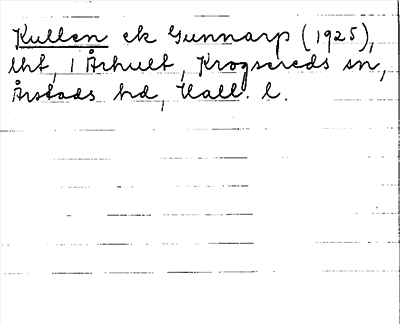 Kullen ek Gunnarp (1925),
lht, i Århult, Krogsereds sn,
Årstads hd, Hall. l.